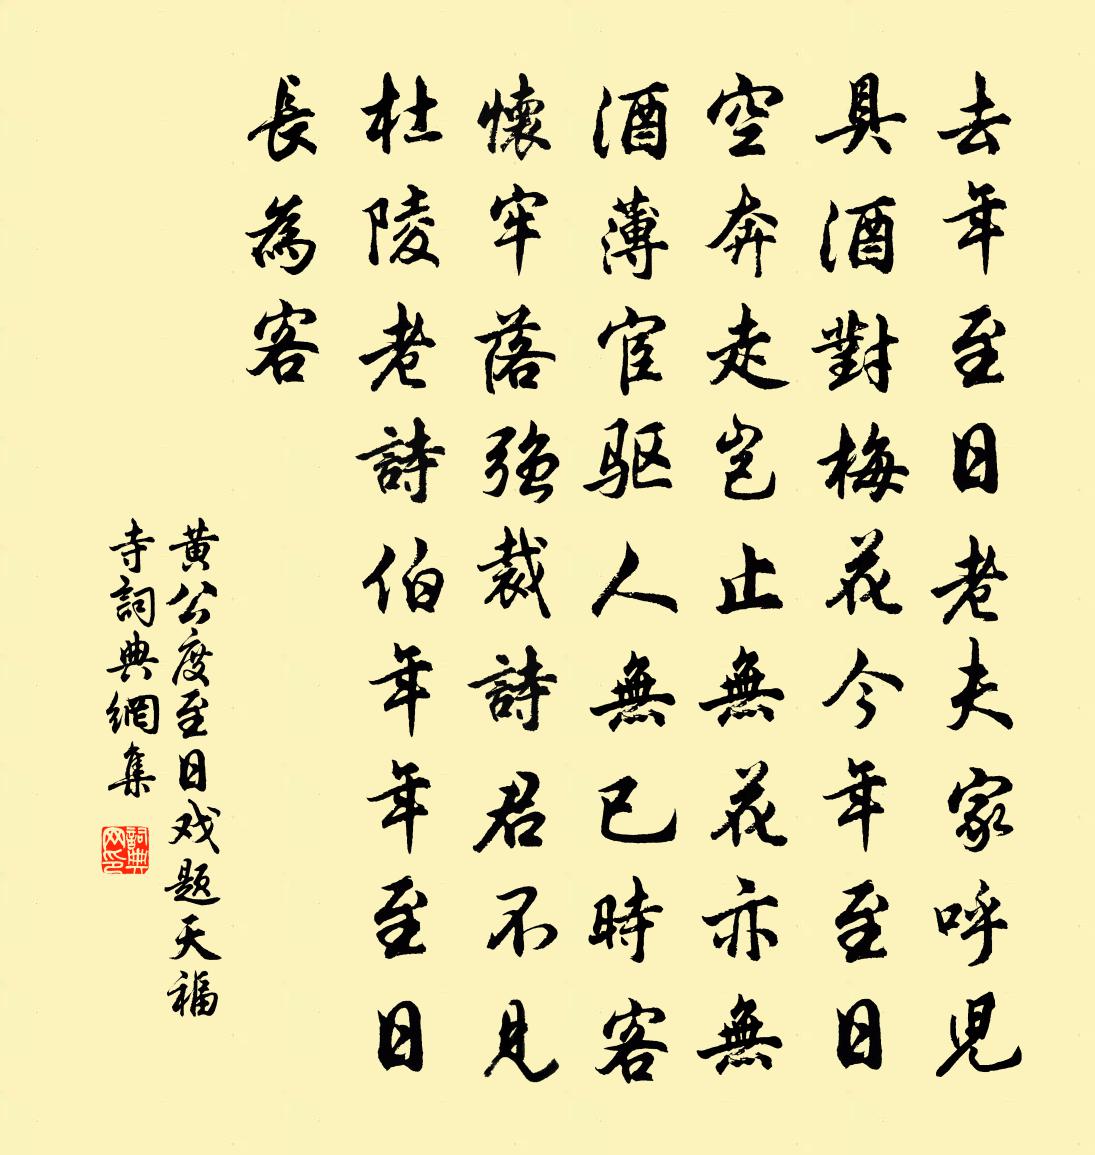 去年至日老夫家呼児
具酒對梅花今年至日
空奔走豈止無花亦無
酒薄宦驱人無已時客
懷牢落强裁詩君不見
杜陵老詩伯年年至日
長為客
黄公度至日戏题天福
寺詞典網集
詞典网印